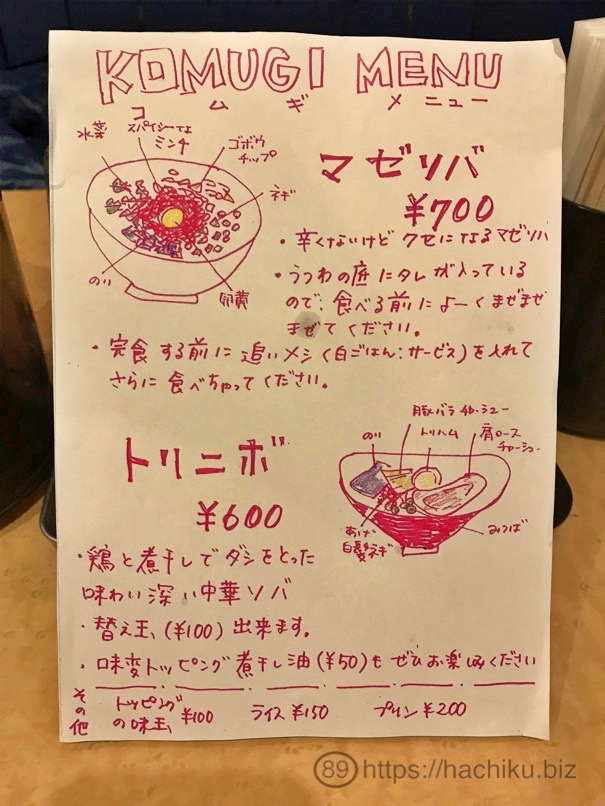 KOMUGI MENU
コムギ メニュー
水菜
スパイシーでよ
ミンチ
ゴボウ
チップ
ネギ
のり
卵黄
マゼソバ
¥700
・辛くないけど クセになるマゼソバ
・うつわの底にタレが入っている
ので、食べる前によーくまぜまぜ
まぜてください。
・完食する前に追いメシ(白ごはん:サービス)を入れて
さらに食べちゃってください。
トリニボ
¥600
豚バラチャーシュー
のり
トリハム
肩ロース
チャーシュー
あげ
白髪ネギ
みつば
・鶏と煮干しでダシをとった
味わい深い中華ソバ
・替え玉、(¥100)出来ます。
・味変トッピング煮干し油(¥50)もぜひお楽しみください
その他
トッピング
の味玉 ¥100
ライス ¥150
プリン ¥200
89 https://hachiku.biz